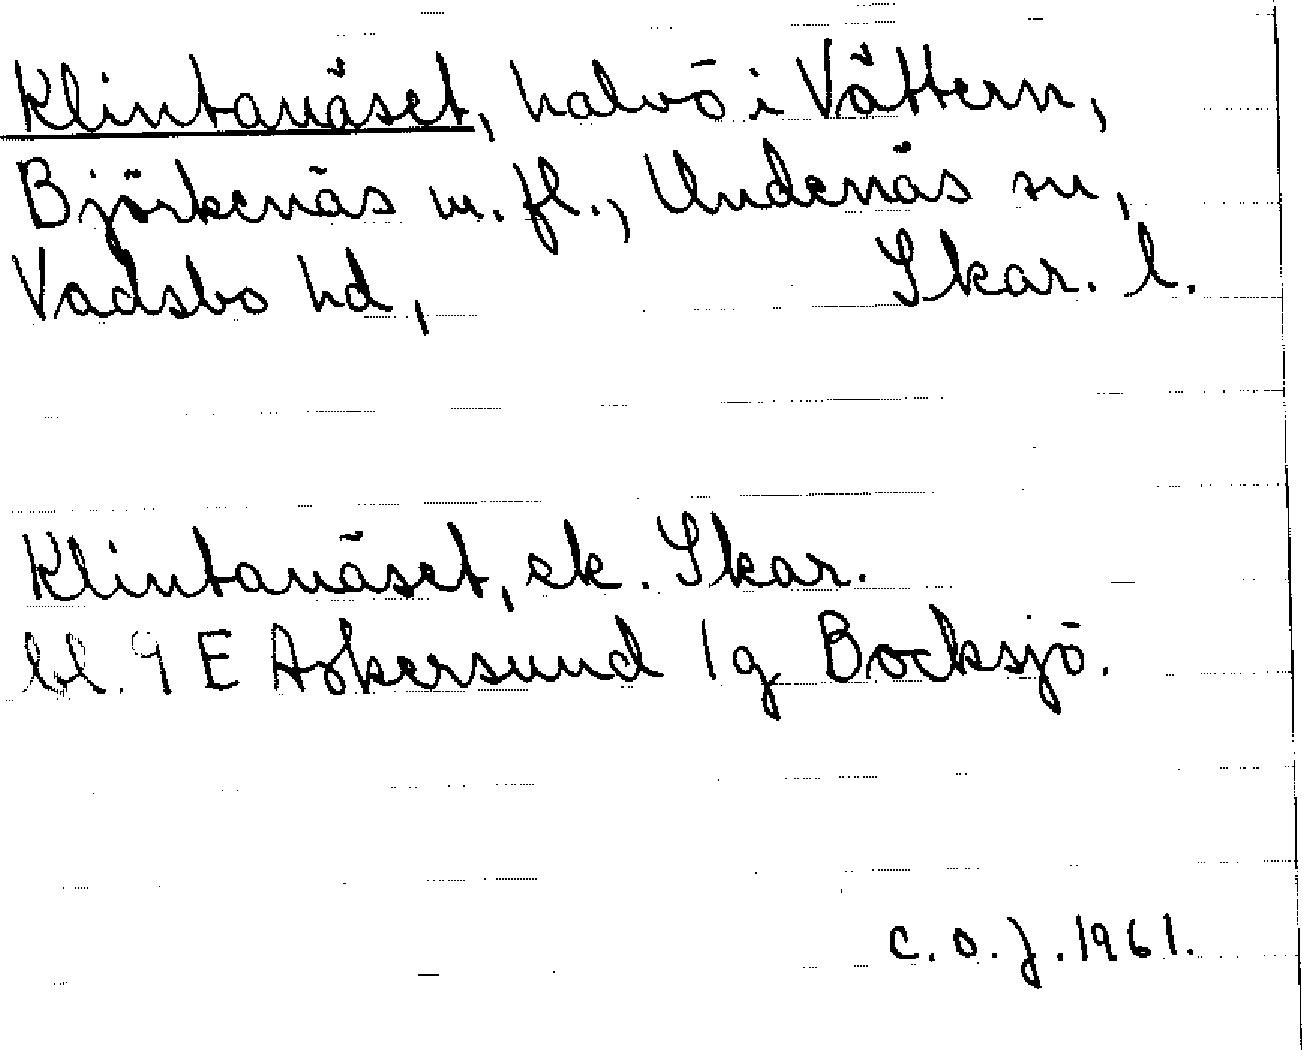 Klintanäset, halvö i Vättern,
Björkenäs m. fl., Undenäs sn,
Vadsbo hd, Skar. l.
Klintanäset, ek. Skar.
bl. 9 E Askersund 1g Bocksjö.
C.O.J. 1961.